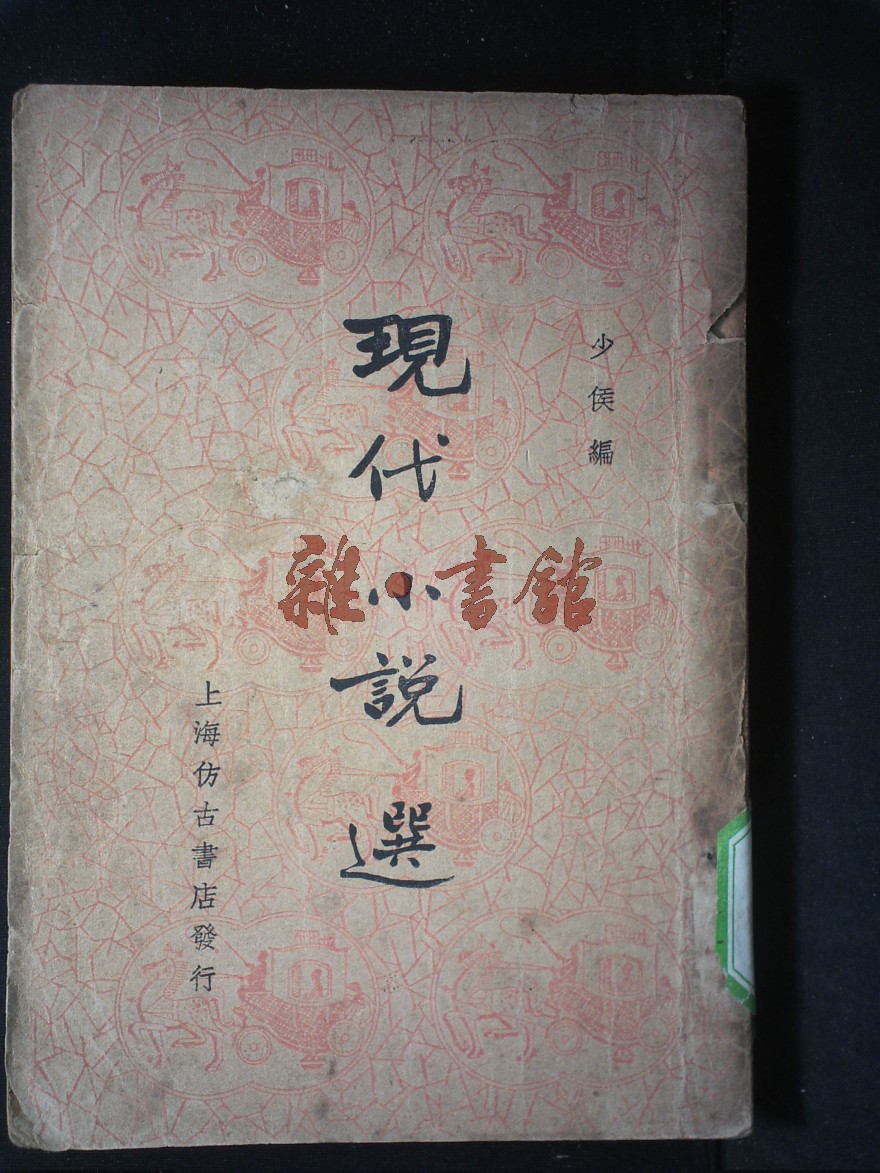 少侯編
現代小説選
上海仿古書店發行
雜書館